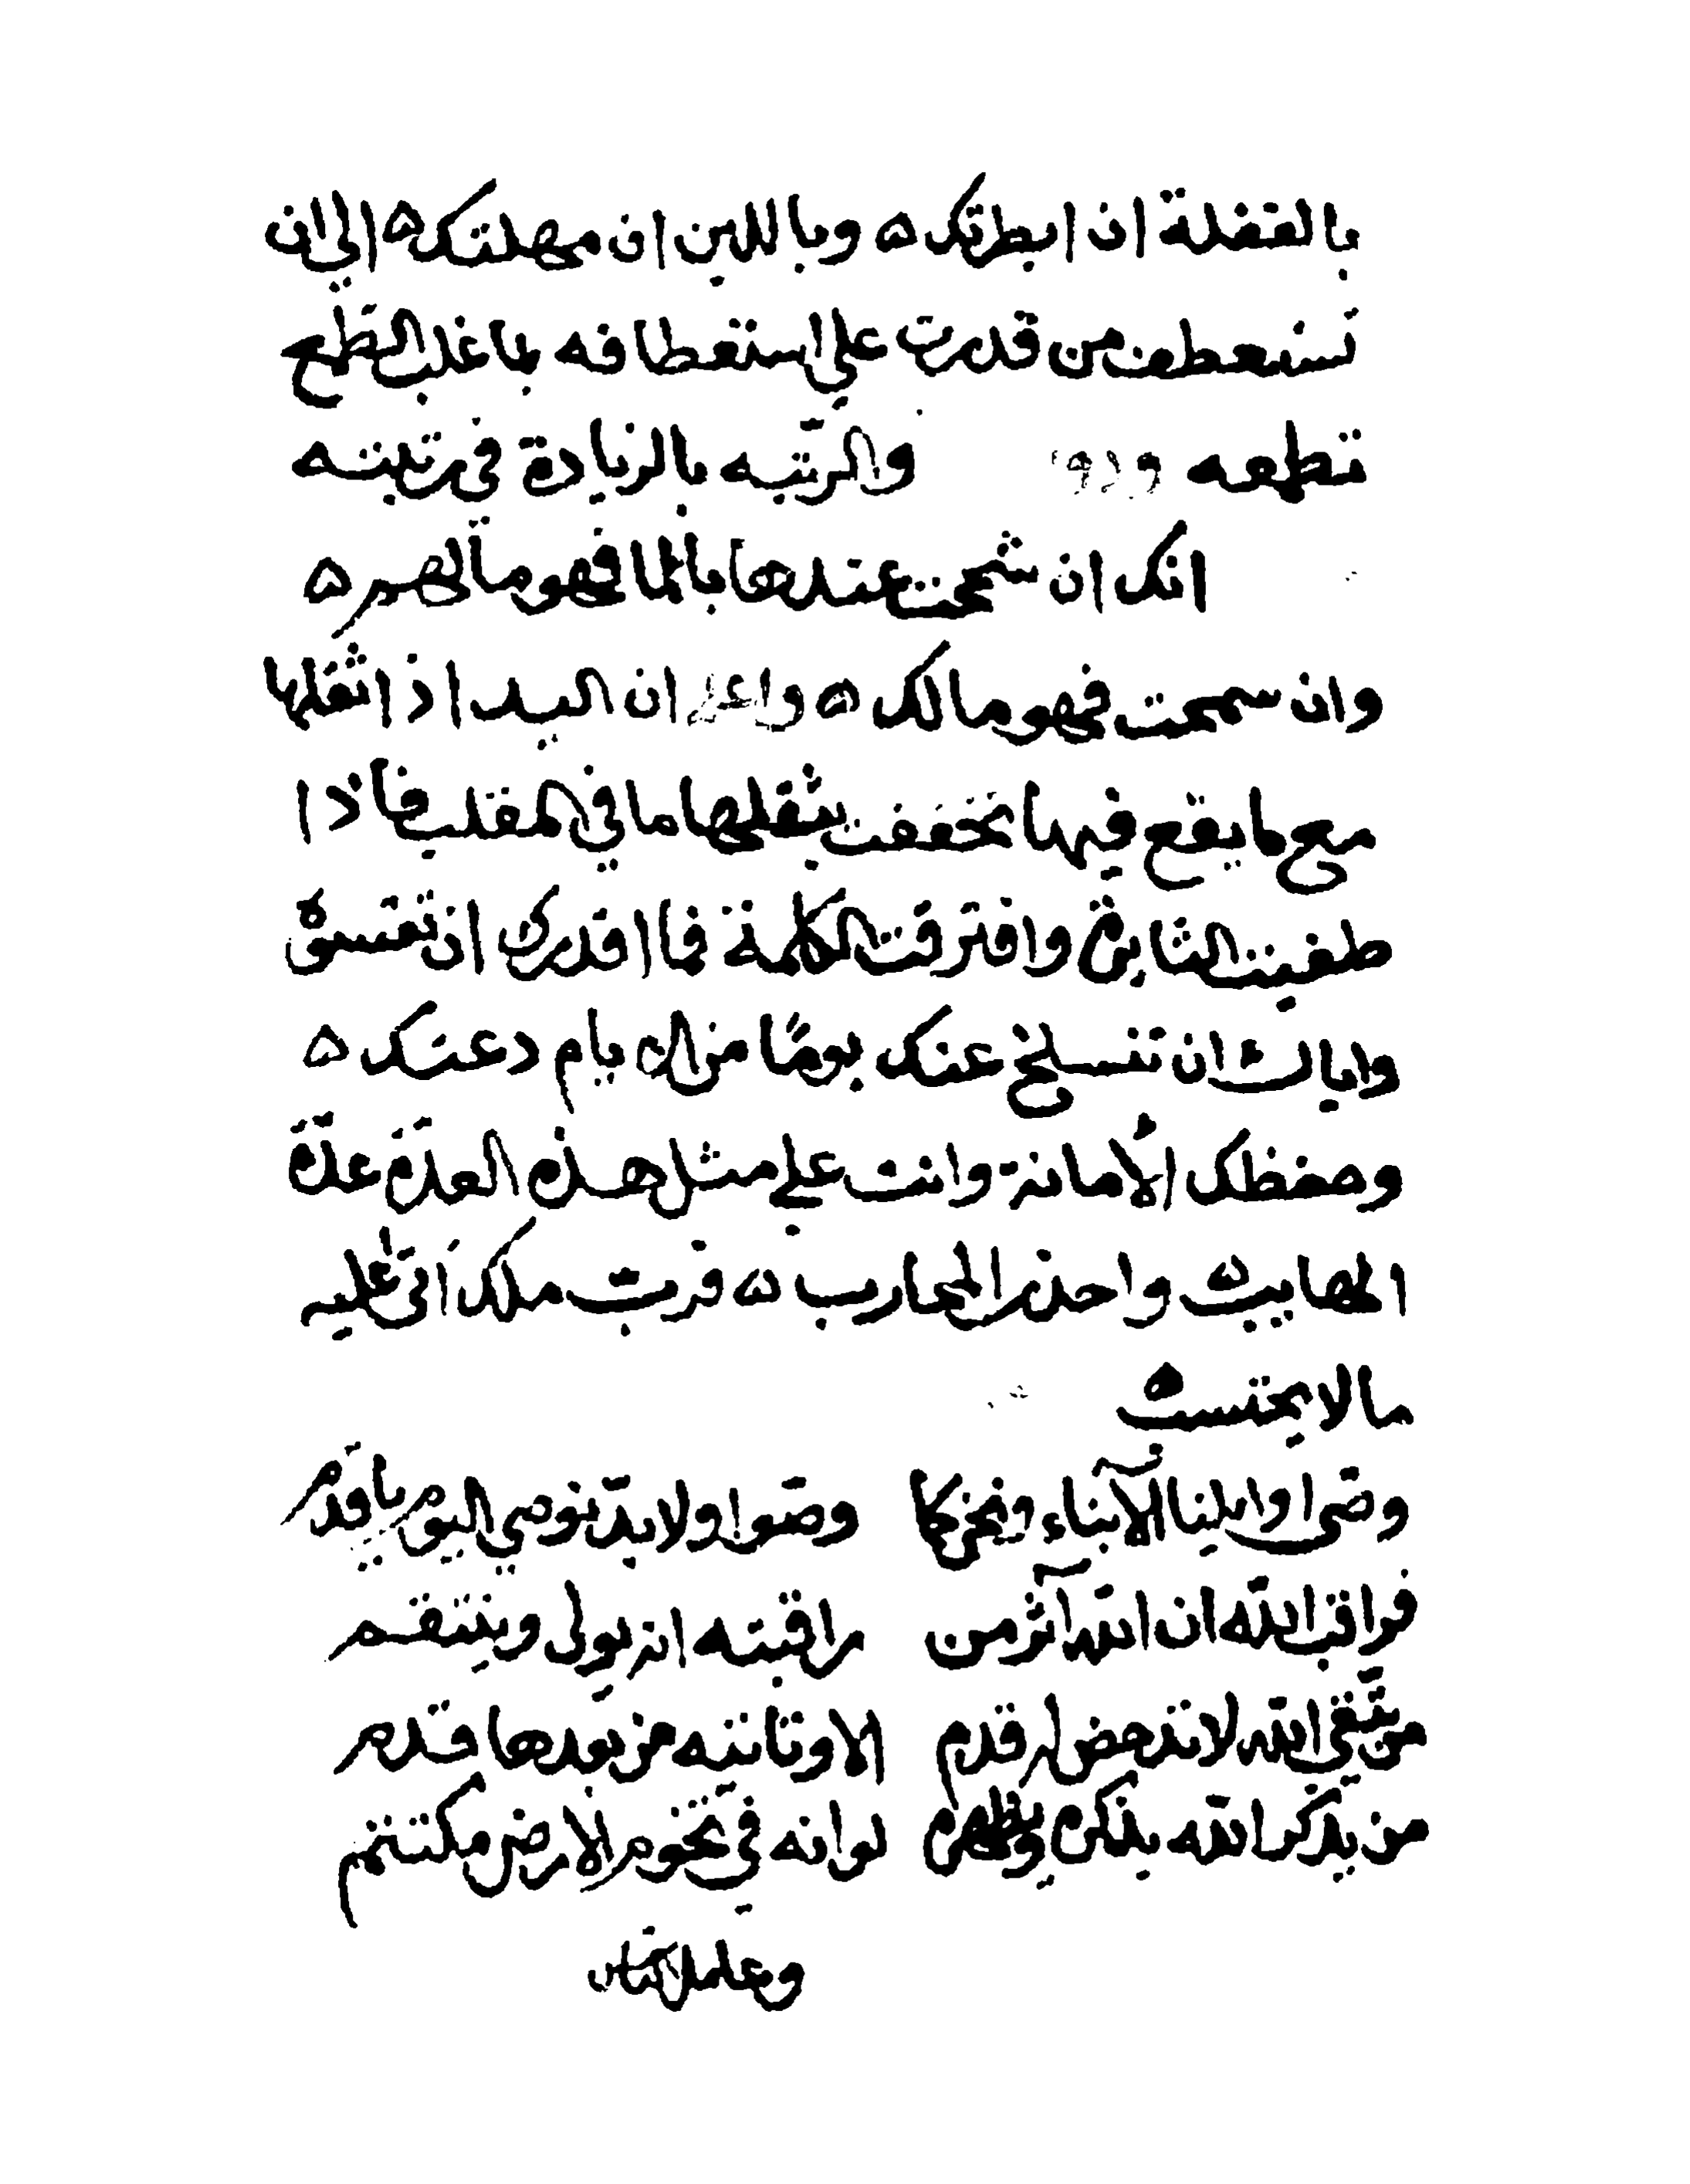 بالغفلة ان ابطرتك ۵ وباللين ان مهلتك ۵ الى ان
تستعطف من قدرت على استعطافه بما غلب الطمع
تطمعه والرتبه بالزيادة في رتبته
انك ان شححت عندها بالما فهو مالهم ۵
وان سمحت فهو مالك ۵ واعلم ان اليد اذا ثقلها
مع ما يقع فيها تخففت بثقلها ما في القلب فاذا
طفيت وافترقت الكلمة فما اقدرك ان
واياك ان تنسلخ عنك يومًا من ايام دعتك ۵
وحفظك الأمانة وانت على مثل هذه العدة عدة
الهايب واحذر المحارب ۵ فرب ملك أتى عليه
ما لا يحتسب
وصى اوايلنا الآبناء ونحن كما وصّوا ولا بدّ نوصي اليوم يا قدم
فراقب الله ان الله آثر من راقبته ان يولى وينتقم
من يتقي الله لا تدحض له قدم الا وتاتيه من بعدها قدم
من يذكر الله يذكره لو انه في تخوم الارض مكتتم